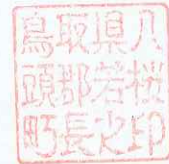 鳥取県八
頭郡若桜
町長之印